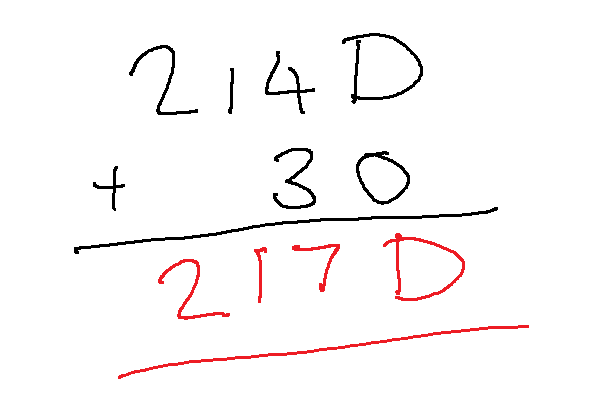 214D
+ 30
217D